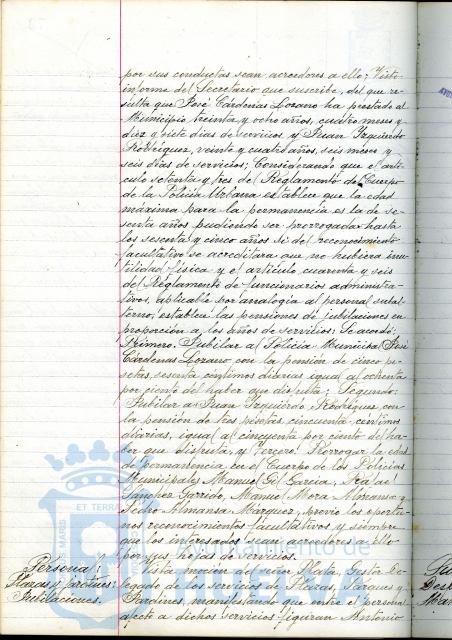 por sus conductas sean acreedores a ello; Visto
informe del Secretario que suscribe, del que re-
sulta que José Cárdenas Lozano ha prestado al
Municipio treinta y ocho años, cuatro meses y
diez y siete dias de servicios, y Juan Izquierdo
Rodríguez, veinte y cuatro años, seis meses y
seis dias de servicios; Considerando que el arti-
culo setenta y tres del Reglamento del Cuerpo
de la Policia Urbana establece que la edad
máxima para la permanencia es la de se-
senta años pudiendo ser prorrogada hasta
los sesenta y cinco años si del reconocimiento
facultativo se acreditara que no hubiera inu-
tilidad física y el artículo cuarenta y seis
del Reglamento de funcionarios administra-
tivos, aplicable por analogia al personal subal-
terno, establece las pensiones de jubilaciones en
proporción a los años de servicios; Se acordó:
Primero. Jubilar al Policia Municipal José
Cárdenas Lozano con la pensión de cinco pe-
setas, sesenta centimos diarias, igual al ochenta
por ciento del haber que disfruta; Segundo:
Jubilar a Juan Izquierdo Rodríguez, con
la pensión de tres pesetas, cincuenta centimos
diarias, igual al cincuenta por ciento del ha-
ber que disfruta, y Tercero: Prorrogar la edad
de permanencia en el Cuerpo de los Policias
Municipales Manuel Gil Garcia, Rafael
Sánchez Garrido, Manuel Mora Almansa y
Pedro Almansa Marquez, previo los oportu-
nos reconocimientos facultativos y siempre
que los interesados sean acreedores a ello
por sus hojas de servicios.
Personal
Plazas y Jardines:
Jubilaciones.
Vista moción del señor Plata, Gestor De-
legado de los servicios de Plazas, Parques y
Jardines, manifestando que entre el personal
afecto a dichos servicios figuran Antonio
ET TERRA
MARIS
Ayuntamiento de